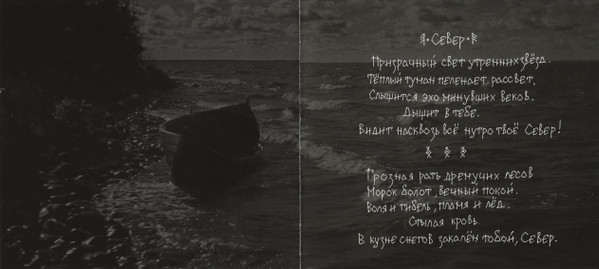 · Север ·
Призрачный свет утренних звёзд.
Тёплый туман пеленает рассвет.
Слышится эхо минувших веков.
Дышит в тебе.
Видит насквозь всё нутро твоё Север!
Грозная рать дремучих лесов
Морок болот, вечный покой.
Воля и гибель, пламя и лёд.
Стылая кровь.
В кузне снегов закалён тобой, Север.